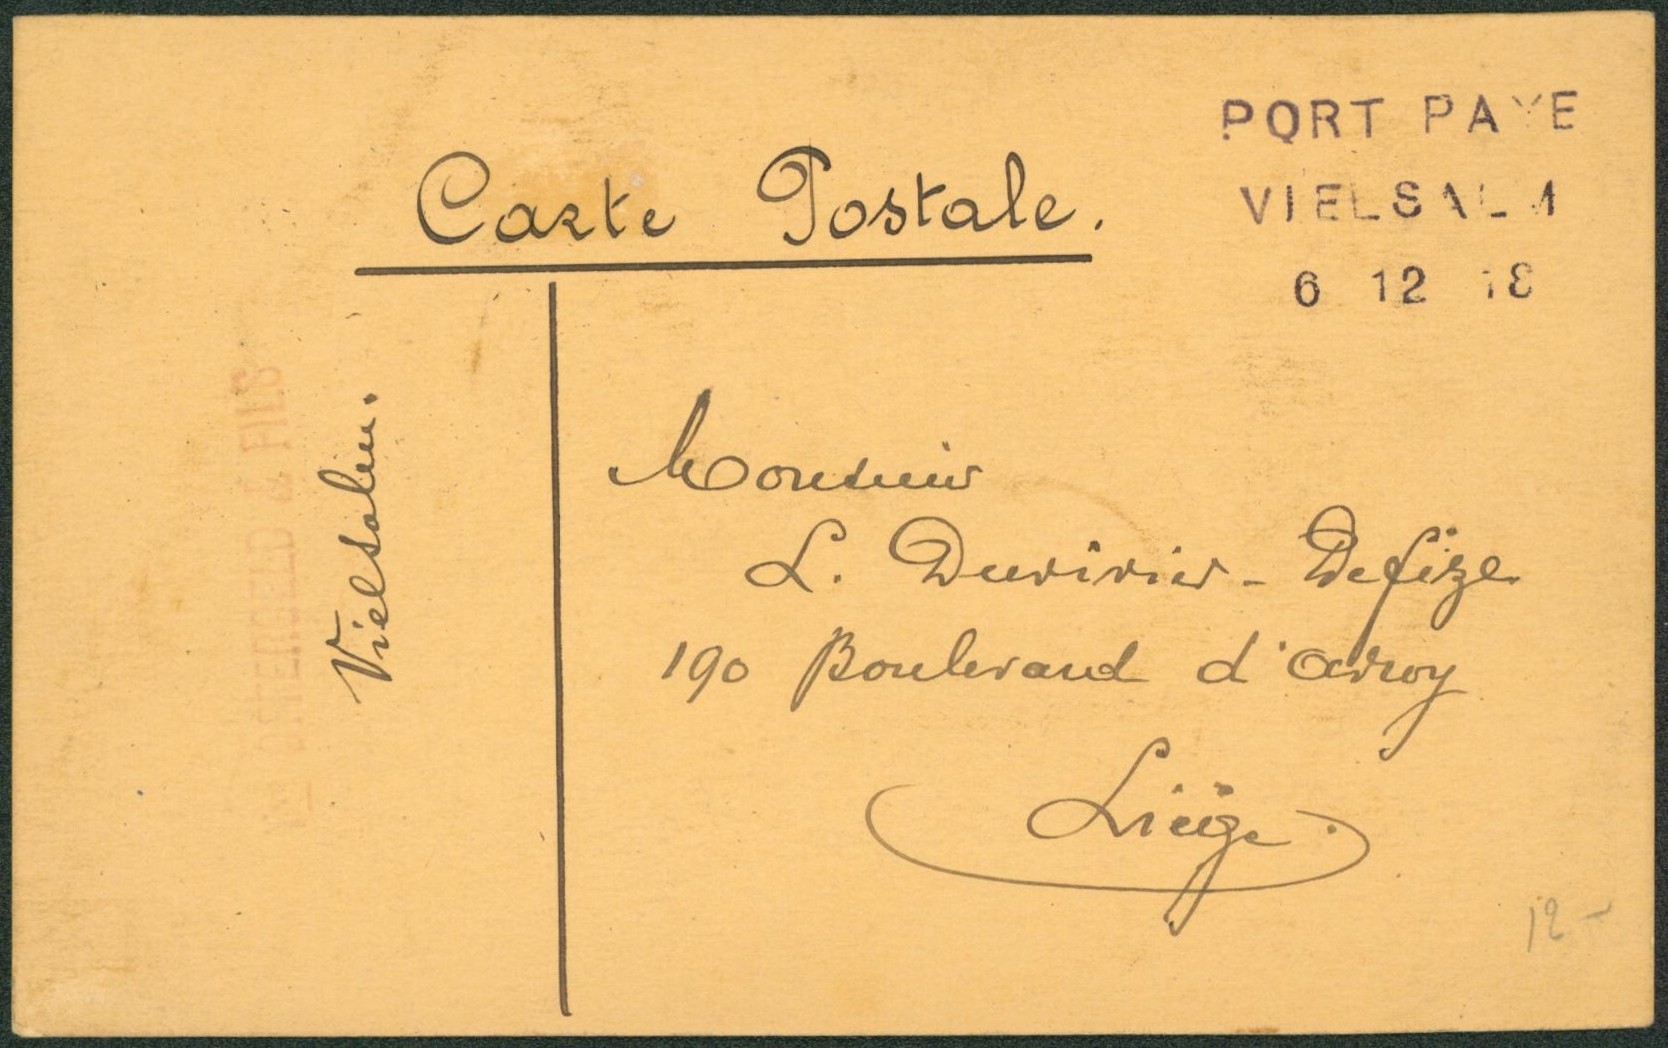 PORT PAYE
VIELSALM
6 12 18
Carte Postale.
Vielsalm.
Monsieur
L. Duvivier - Defize
190 Boulevard d'Avroy
Liège.
12 -